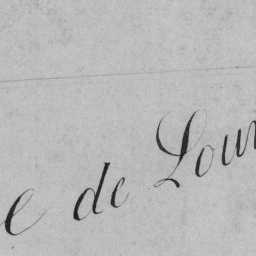 e de Lour